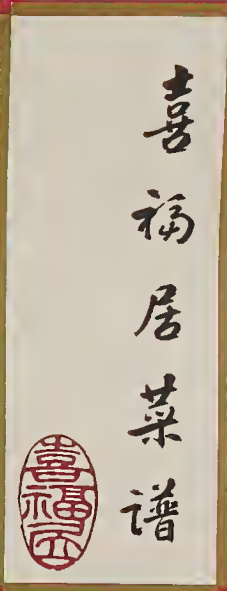 喜福居菜谱
喜福居